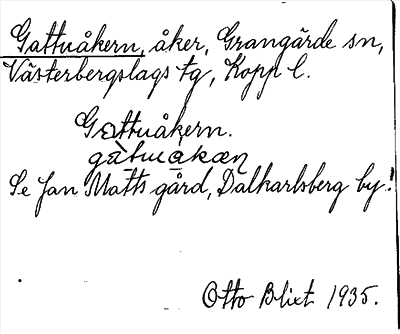 Gattuåkern, åker, Grangärde sn,
Västerbergslags tg, Kopp l.
Gattuåkern.
gàtuuåkæṇ
Se Jan Matts gård, Dalkarlsberg by!
Otto Blixt 1935.